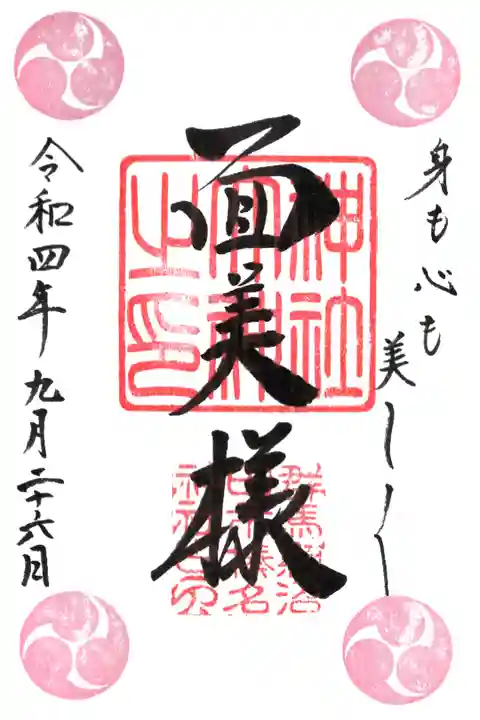 身も心も
美しく
面美様
令和四年九月二十六日
神社
之印